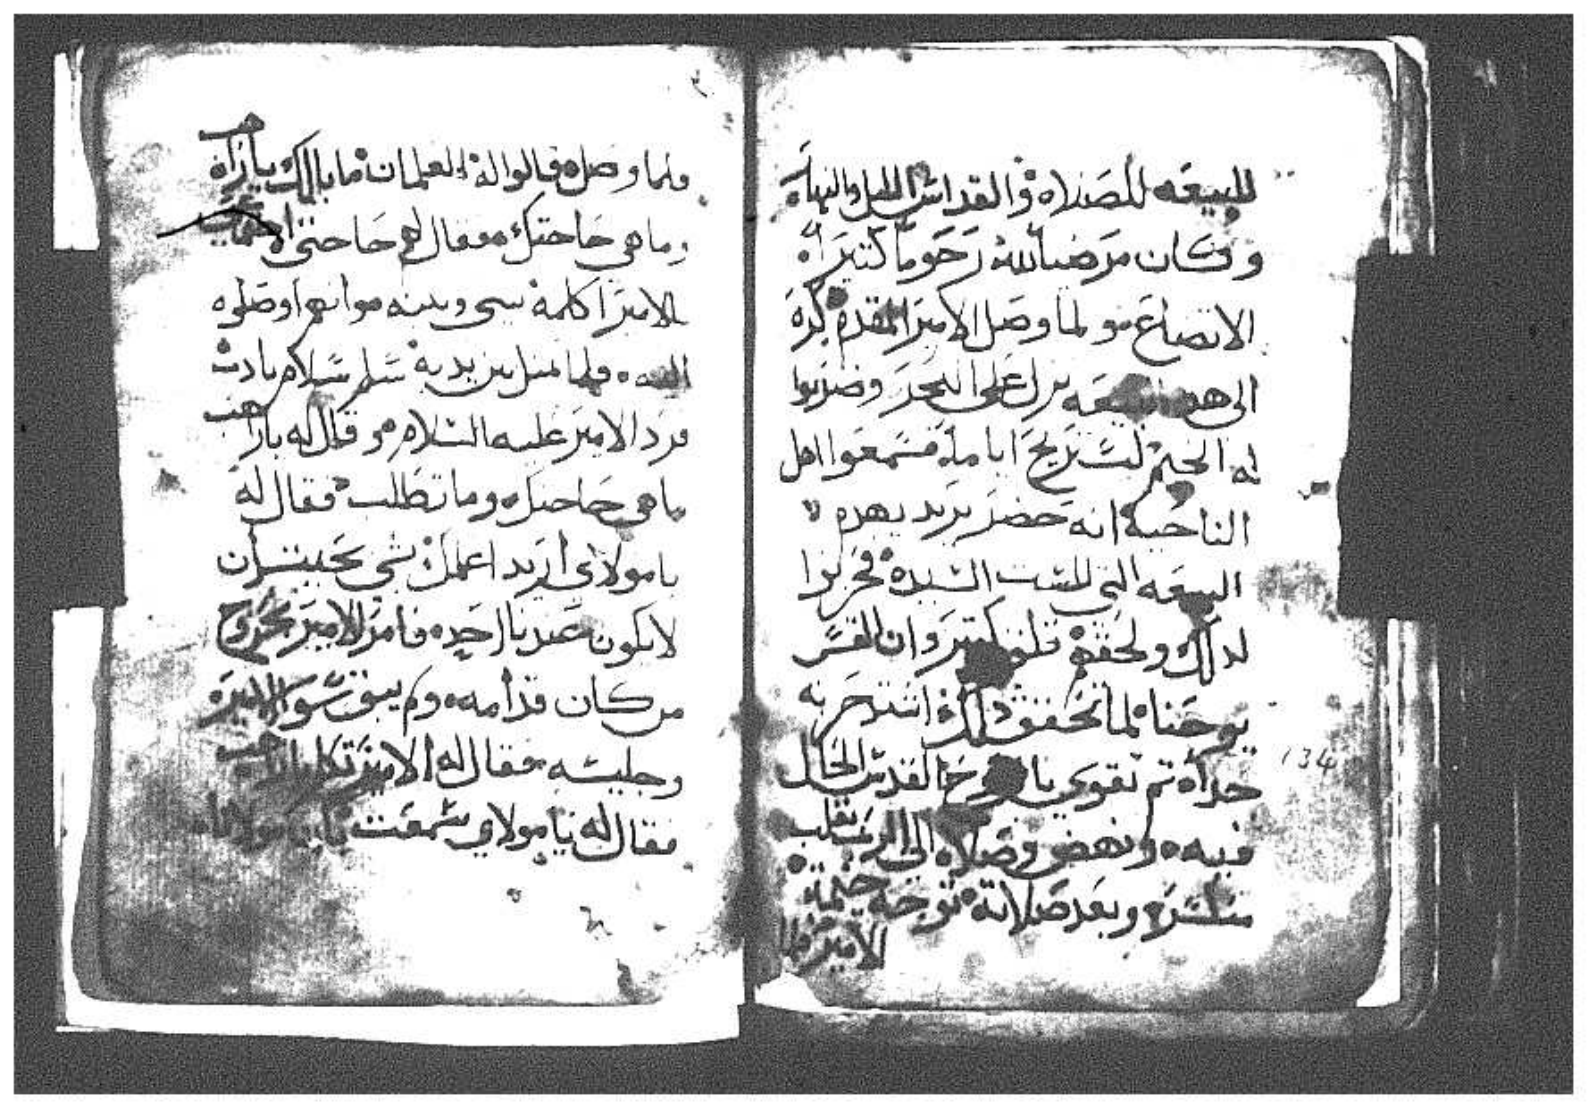 للبيعه للصلاه والقداس الليل والنهار
وكان مرضيا لله رحوما كتير
الاتضاع ولما وصل الامير المقدم دكره
الى هده البيعه نزل على البحر وضربوا
له الخيم لستريح اياما فسمعوا اهل
الناحية انه حضر يريد يهدم
البيعه التي للست السيده فحزنوا
لدلك ولحقهم قلق كتير وان القس
يوحنا لما تحقق دلك اشتد حزنه
جدا تم تقوى بالروح القدس الحال
فيه ونهض وصلا الى الرب بقلب
منكسر وبعد صلاته توجه خيمة
الامير فلما
134
ولما وصل قالوا له الغلمان ما بالك يا راهب
وما هي حاجتك فقال لهم حاجتي
الامير اكلمه بيني وبينه وانهم اوصلوه
اليه فلما متل بين يديه سلم سلام بادب
فرد الامير عليه السلام وقال له يا راهب
ما هي حاجتك وما تطلب فقال له
يا مولاي اريد اعلمك بشي بحيت ان
لا يكون عندنا احد فامر الامير بخروج
من كان قدامه ولم يبق سوا الامير
وجليسه فقال له الامير تكلم يا راهب
فقال له يا مولاي سمعت